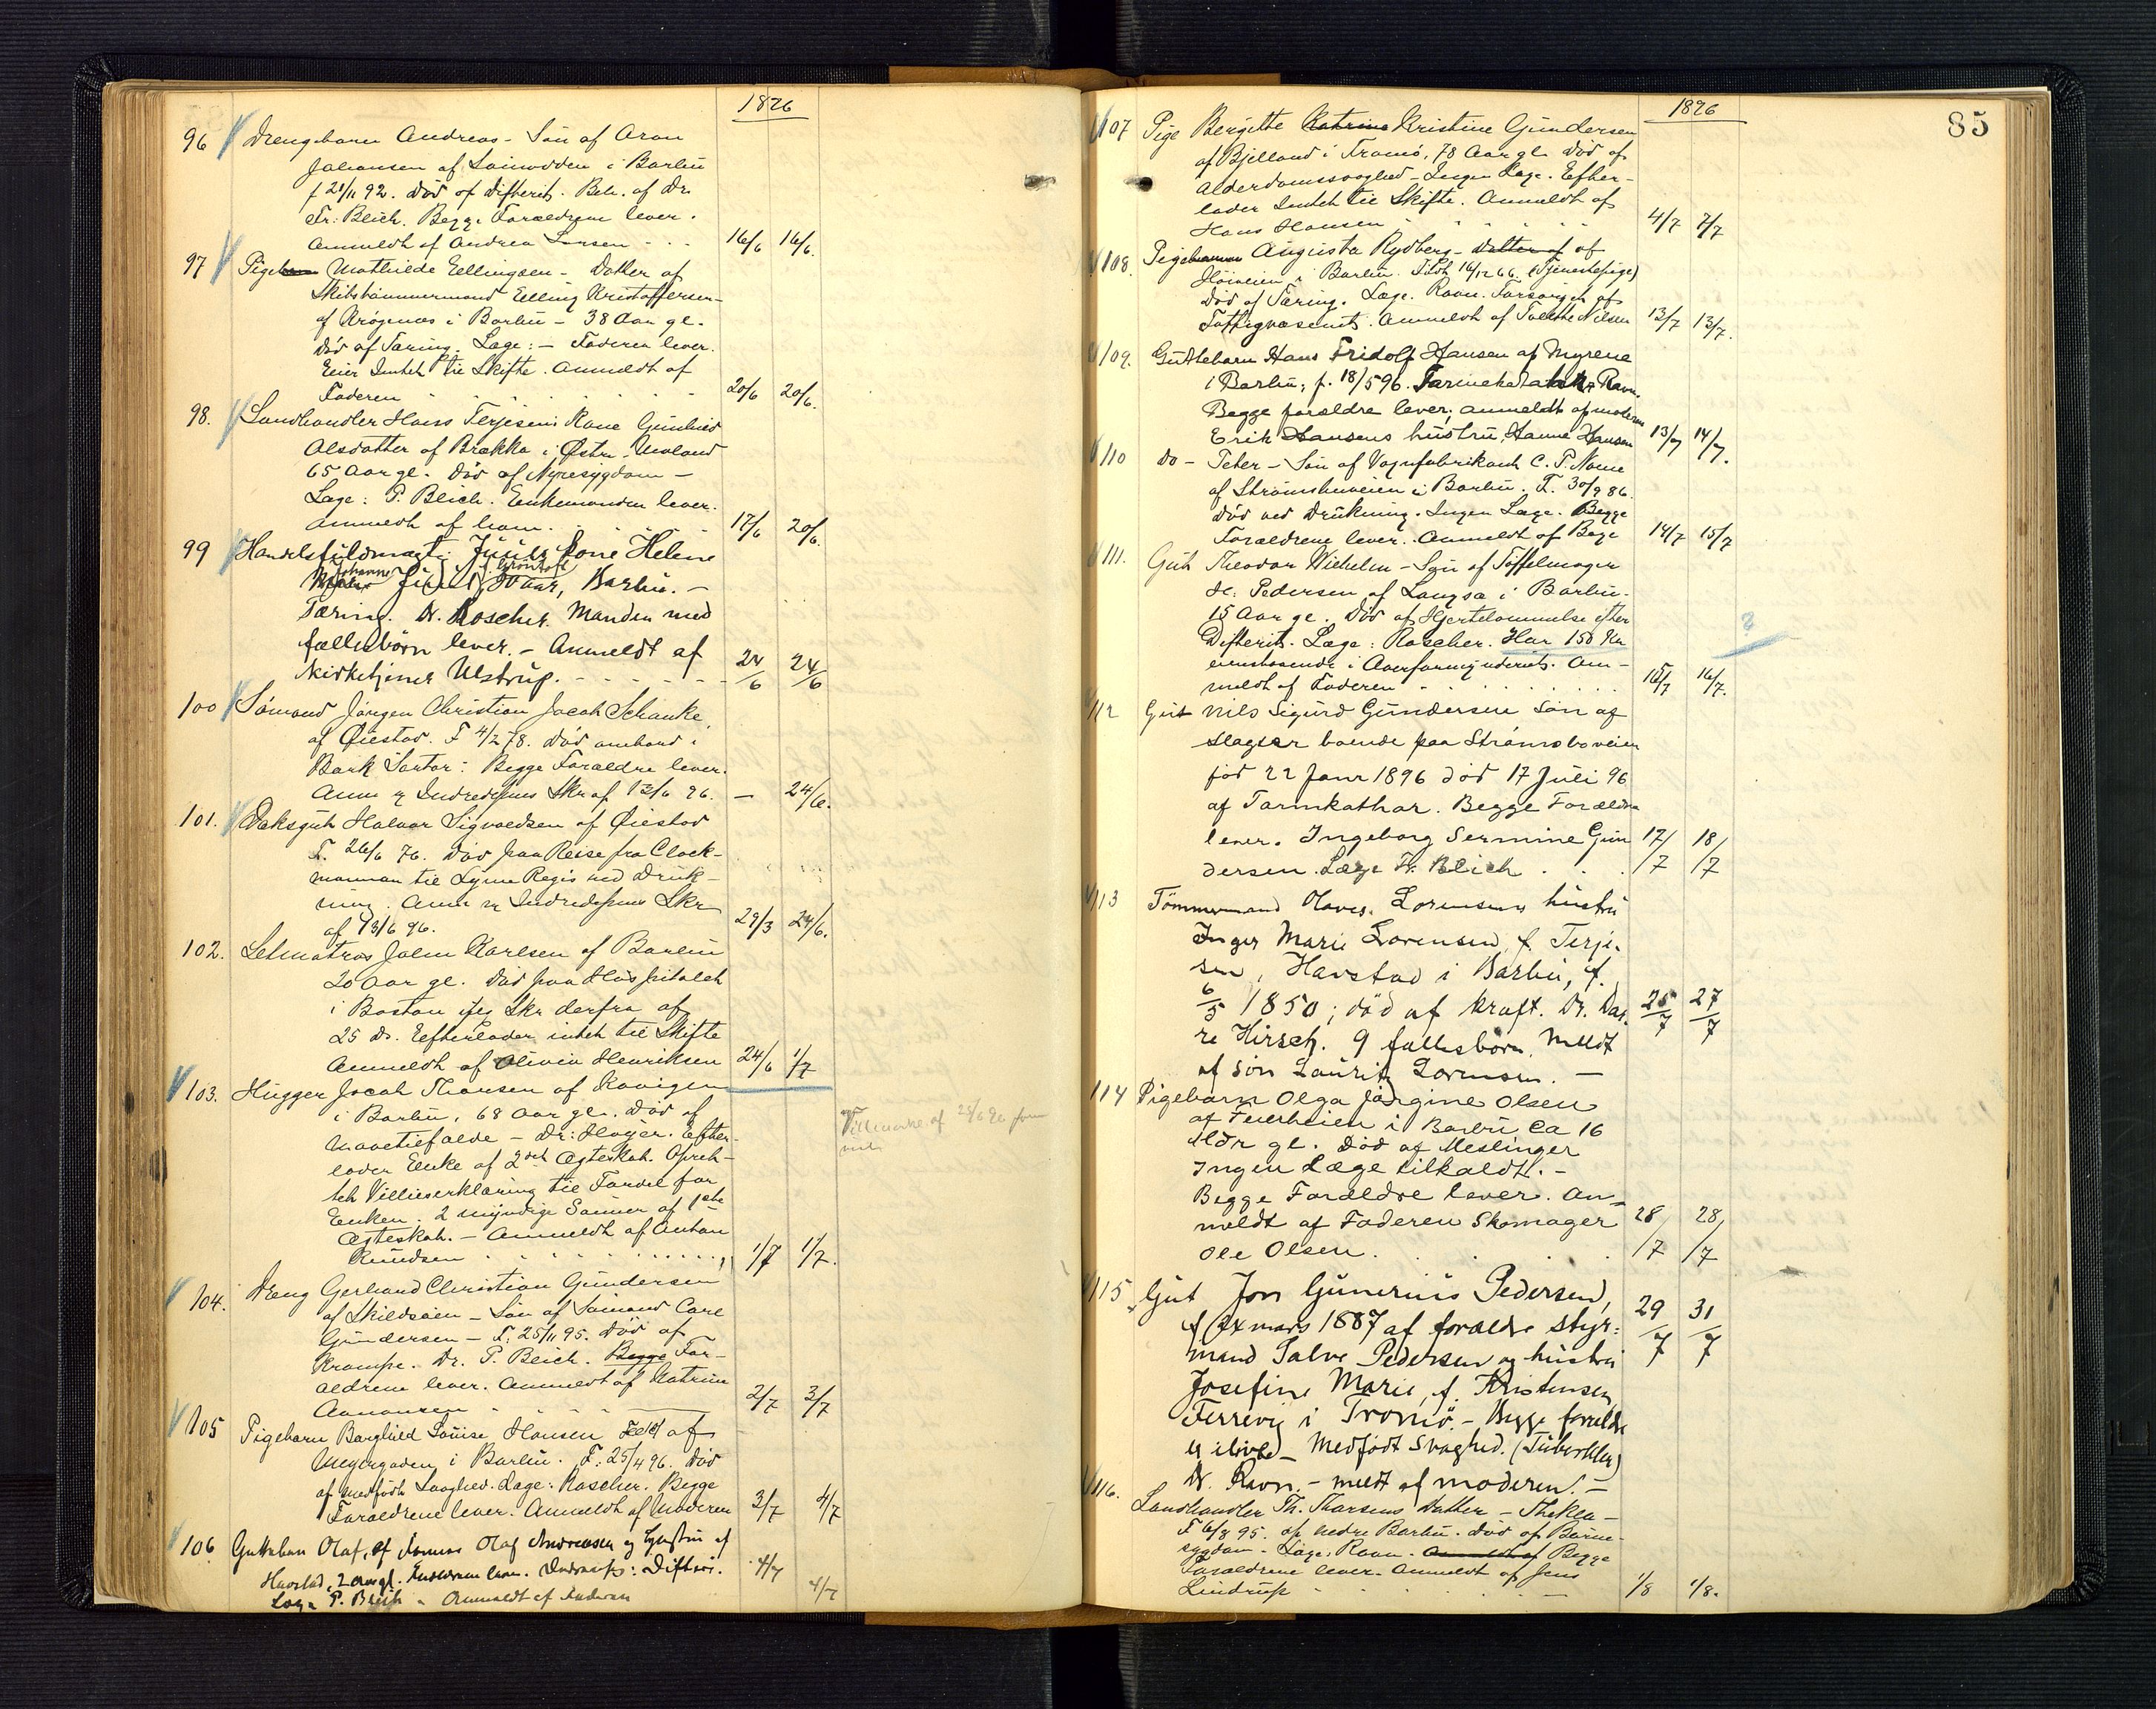 1896
96 Drengebarn Andreas - Søn af Aron
Johansen af Loinodden i Barbu
f 21/11 92. Død af Difterit. Beh. af Dr.
Fr: Bleich. Begge Forældrene lever.
Anmeldt af Andrea Larsen - - - 16/6 16/6.
97 Pigebarn Mathilde Eellingsen - Datter af
Skibstømmermand Eelling Kristoffersen
af Krøgenæs i Barbu - 38 Aar gl.
Død af Tæring. Læge: - Faderen lever.
Eier Intet til Skifte. Anmeldt af
Faderen 20/6 20/6.
98. Landhandler Hans Terjesens Kone Gunhild
Alsdatter af Brække i Østre Moland
65 Aar gl. Død af Nyresygdom -
Læge: P. Bleich. Enkemanden lever.
Anmeldt af ham. 17/6 20/6.
99 Handelsfuldmægtig Juuls Kone Helene
Johanne Juul, f. Grøntoft
30 aar, Barbu. -
Tæring. Dr. Roscher. Manden med
fællesbörn lever. - Anmeldt af
Kirketjener Ulstrup. - - - - 24/6 24/6
100 Sømand Jørgen Christian Jacob Schanke,
af Øiestad. F 4/2 78. død ombord i
Bark Sartor: Begge Forældre lever.
Anm. Indredepnes Skr af 13/6 96. - 24/6.
101. Dæksgut Halvor Sigvaldsen af Øiestad
F. 26/6 76. Død paa Reise fra Clack-
mannan til Lyme Regis ved Druk-
ning. Anm. Indredepnes Skr
af 13/6 96. 29/3 24/6.
102. Letmatros John Karlsen af Barbu
20 Aar gl. Død paa Hospitalet
i Boston iflg Skr derfra af
25 Ds. Eefterlader intet til Skifte
Anmeldt af Olivia Henriksen 24/6 1/7
103. Hugger Jacob Thomsen af Kovigen
i Barbu, 68 Aar gl. Død af
Mavetilfælde - Dr: Høyer. Efter-
lader Enke af 2det Ægteskab. Opret-
tet Villieserklæring til Fordel for
Enken. 2 myndige Sønner af 1ste
Ægteskab. - Anmeldt af Anton
Knudsen 1/7 1/7.
af 28/6
104. Dreng Gerhard Christian Gundersen
af Skilsøen - Søn af Sømand Carl
Gundersen - F. 25/11 95. Død af
Krampe. Dr. P. Bleich. Begge For-
ældrene lever. Anmeldt af Katrine
Aanonsen 2/7 3/7
105 Pigebarn Borghild Louise Hansen af
Meyergaden i Barbu. F. 25/4 96. Død
af medfødt Svaghed. Læge: Roscher. Begge
Forældrene lever. Anmeldt af Moderen 3/7 4/7
106 Guttebarn Olaf, af Olaf Andreassen og Hustru af
Havstad, 2 aar gl. Forældrene lever. Difteri. 4/7
Læge P. Bleich - Anmeldt af Faderen 4/7
85
1896
107 Pige Bergitte Katrine Kristine Gundersen
af Bjelland i Tromö, 78 Aar gl. Død af
Alderdomssvaghed - Ingen Læge. Efter-
lader Intet til Skifte. Anmeldt af
Hans Hansen 4/7 7/7
108. Pigebarn Augusta Rydberg - Datter af af
Høiveien i Barbu. Født 16/12 66. (Tjenestepige)
Død af Tæring. Læge. Ravn. Forsørget af
Fattigvæsenet. Anmeldt af Tallette Nilsen 13/7 13/7.
109. Guttebarn Hans Fridolf Hansen af Myrene
i Barbu; f. 18/5 96. Tarmekatarrh. Ravn.
Begge forældre lever; anmeldt af moderen
Erik Hansens hustru, Hanna Hansen 13/7 14/7.
110 do - Peter - Søn af Vognfabrikant C. P. Næne
af Strømsbuveien i Barbu. F. 30/9 86.
Død ved Drukning. Ingen Læge. Begge
Forældrene lever. Anmeldt af Bege 14/7 15/7
111. Gut Theodor Wilhelm - Søn af Tøffelmager
H. Pedersen af Langsæ i Barbu.
15 Aar gl. Død af Hjertelammelse efter
Difterit. Læge: Roscher. Har 150 Kr
indestaaende i Overformynderiet. An-
meldt af Faderen 15/7 16/7.
?
112 Gut Nils Sigurd Gundersen Søn af
Slagter boende paa Strømsboveien
fød 22 Janr 1896 død 17 Juli 96
af Tarmkathar. Begge Forældre
lever. Ingeborg Sermine Gun 17/7 18/7
dersen. Læge Fr. Bleich . . .
113 Tömmermand Olaves Lorensens hustru
Inger Marie Lorensen, f. Terje-
sen, Havstad i Barbu, f.
6/5 1850; død af kræft. Dr. Das. 25/7 27/7
re Hirsch. 9 fællesbörn. Meldt
af sön Lauritz Lorensen. -
114 Pigebarn Olga Jørgine Olsen
af Feierheien i Barbu Ca 16
Mdr gl. Død af Meslinger
Ingen Læge tilkaldt. -
Begge Forældre lever. An-
meldt af Faderen Skomager 28/7 28/7
Ole Olsen.
115 Gut Jon Gunerius Pedersen,
f 24 mars 1887 af forældre Styr- 29/7 31/7
mand Salve Pedersen og hustru
Josefine Marie, f. Kristensen,
Færevig i Tromö. - Begge forældre
er ilive - Medfödt Svaghed. (Tuberkler)
Dr. Ravn. - meldt af moderen. -
116. Landhandler Th. Tharsens Datter - Thekla -
F 6/8 95. af nedre Barbu. Død af Barne-
sygdom. Læge: Ravn. Anmeldt af Begge
Forældrene lever. Anmeldt af Jens
Lindrup 1/8 1/8.